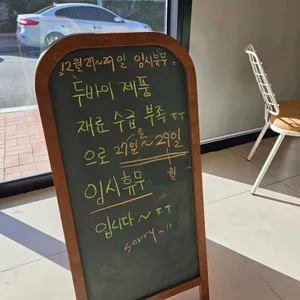 12월 27~29일 임시휴무
두바이 제품
재료 수급 부족 ㅠㅠ
으로 27일~29일
월
임시휴무
입니다~ㅠㅠ
sorry~!!